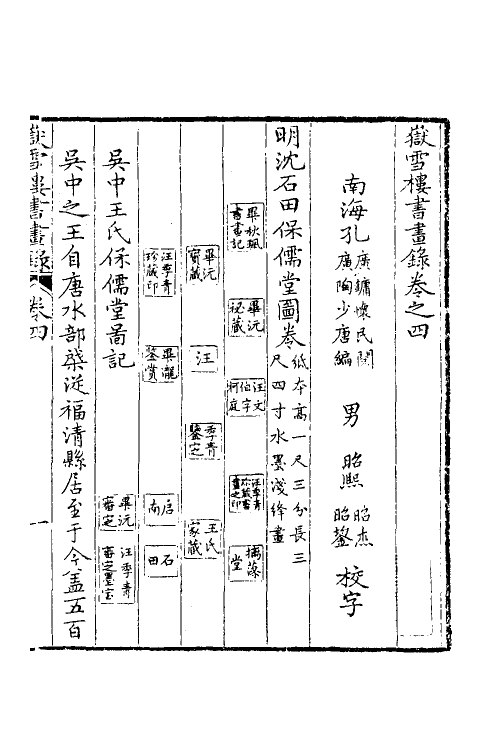 嶽雪樓書畫錄卷之四
南海孔廣鏞懷民閱 廣陶少唐編 男昭熙 昭鋆 昭杰校字
明沈石田保儒堂圖卷紙本高一尺三分長三尺四寸水墨淺絳畫
畢秋颿書畫記 畢沅秘藏 汪文伯字柯庭 汪季青珍藏書畫之印 摛藻堂
畢沅寶藏 汪 季青鑒定 王氏家藏
汪季青珍藏印 畢瀧鑒賞 启南 石田
吳中王氏保儒堂啚記 畢沅審定 汪季青審定墨宝
吳中之王自唐水部棨從福清縣居至于今盖五百
嶽雪樓書畫錄 卷四 一